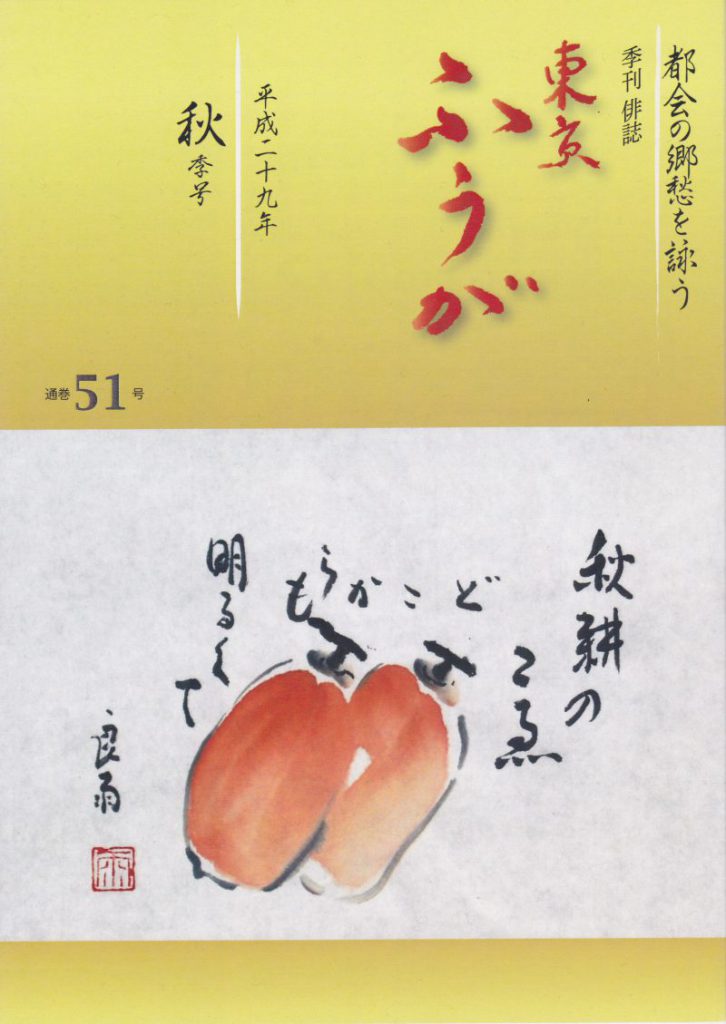 都会の郷愁を詠う
季刊 俳誌
東京
ふうが
平成二十九年
秋季号
通巻51号
秋耕の
こゑ
どこからも
明るくて
良雨